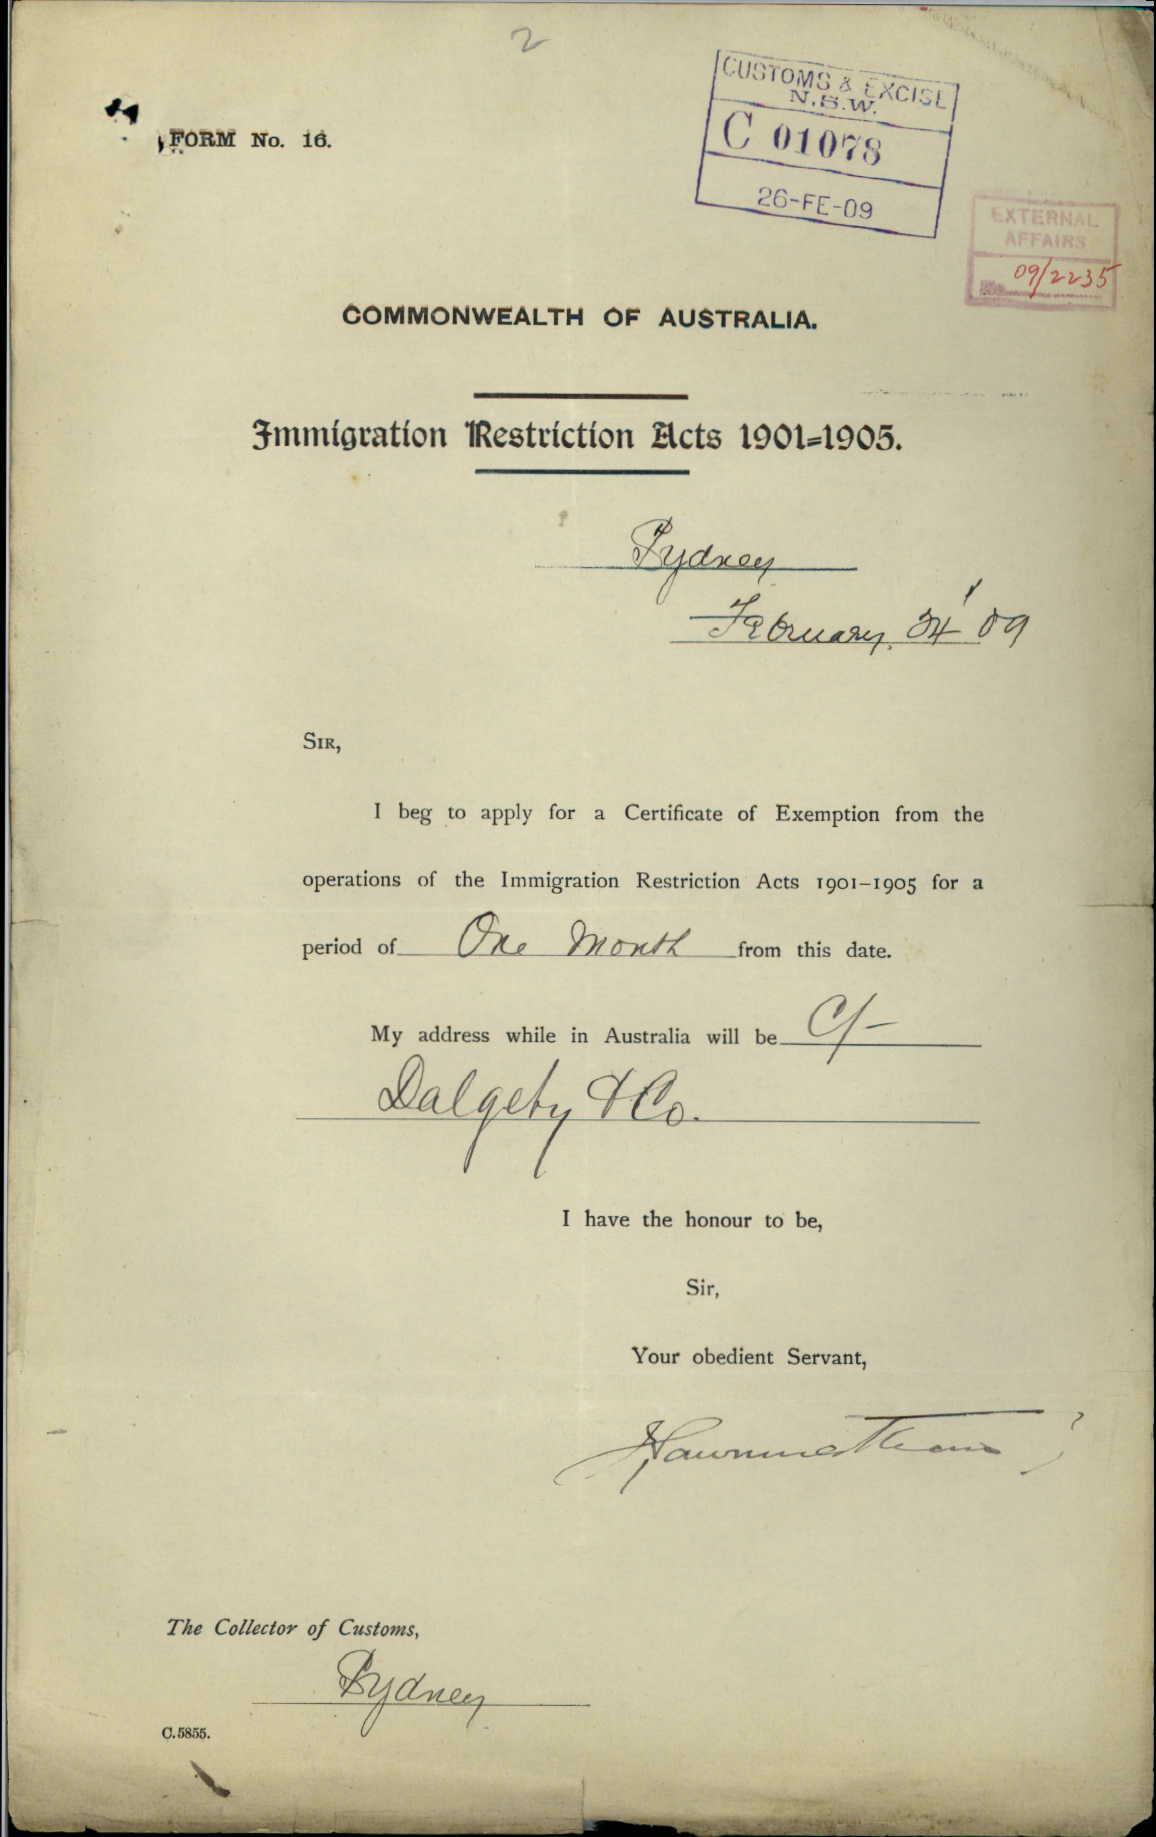 2
CUSTOMS & EXCISE
N.S.W.
C 01078
26-FE-09
FORM No. 16.
EXTERNAL
AFFAIRS
09/2235
COMMONWEALTH OF AUSTRALIA.
Immigration Restriction Acts 1901-1905.
Sydney
February, 24' 09
SIR,
I beg to apply for a Certificate of Exemption from the
operations of the Immigration Restriction Acts 1901–1905 for a
period of One Month from this date.
My address while in Australia will be C/-
Dalgety & Co.
I have the honour to be,
Sir,
Your obedient Servant,
The Collector of Customs,
Sydney
C.5855.